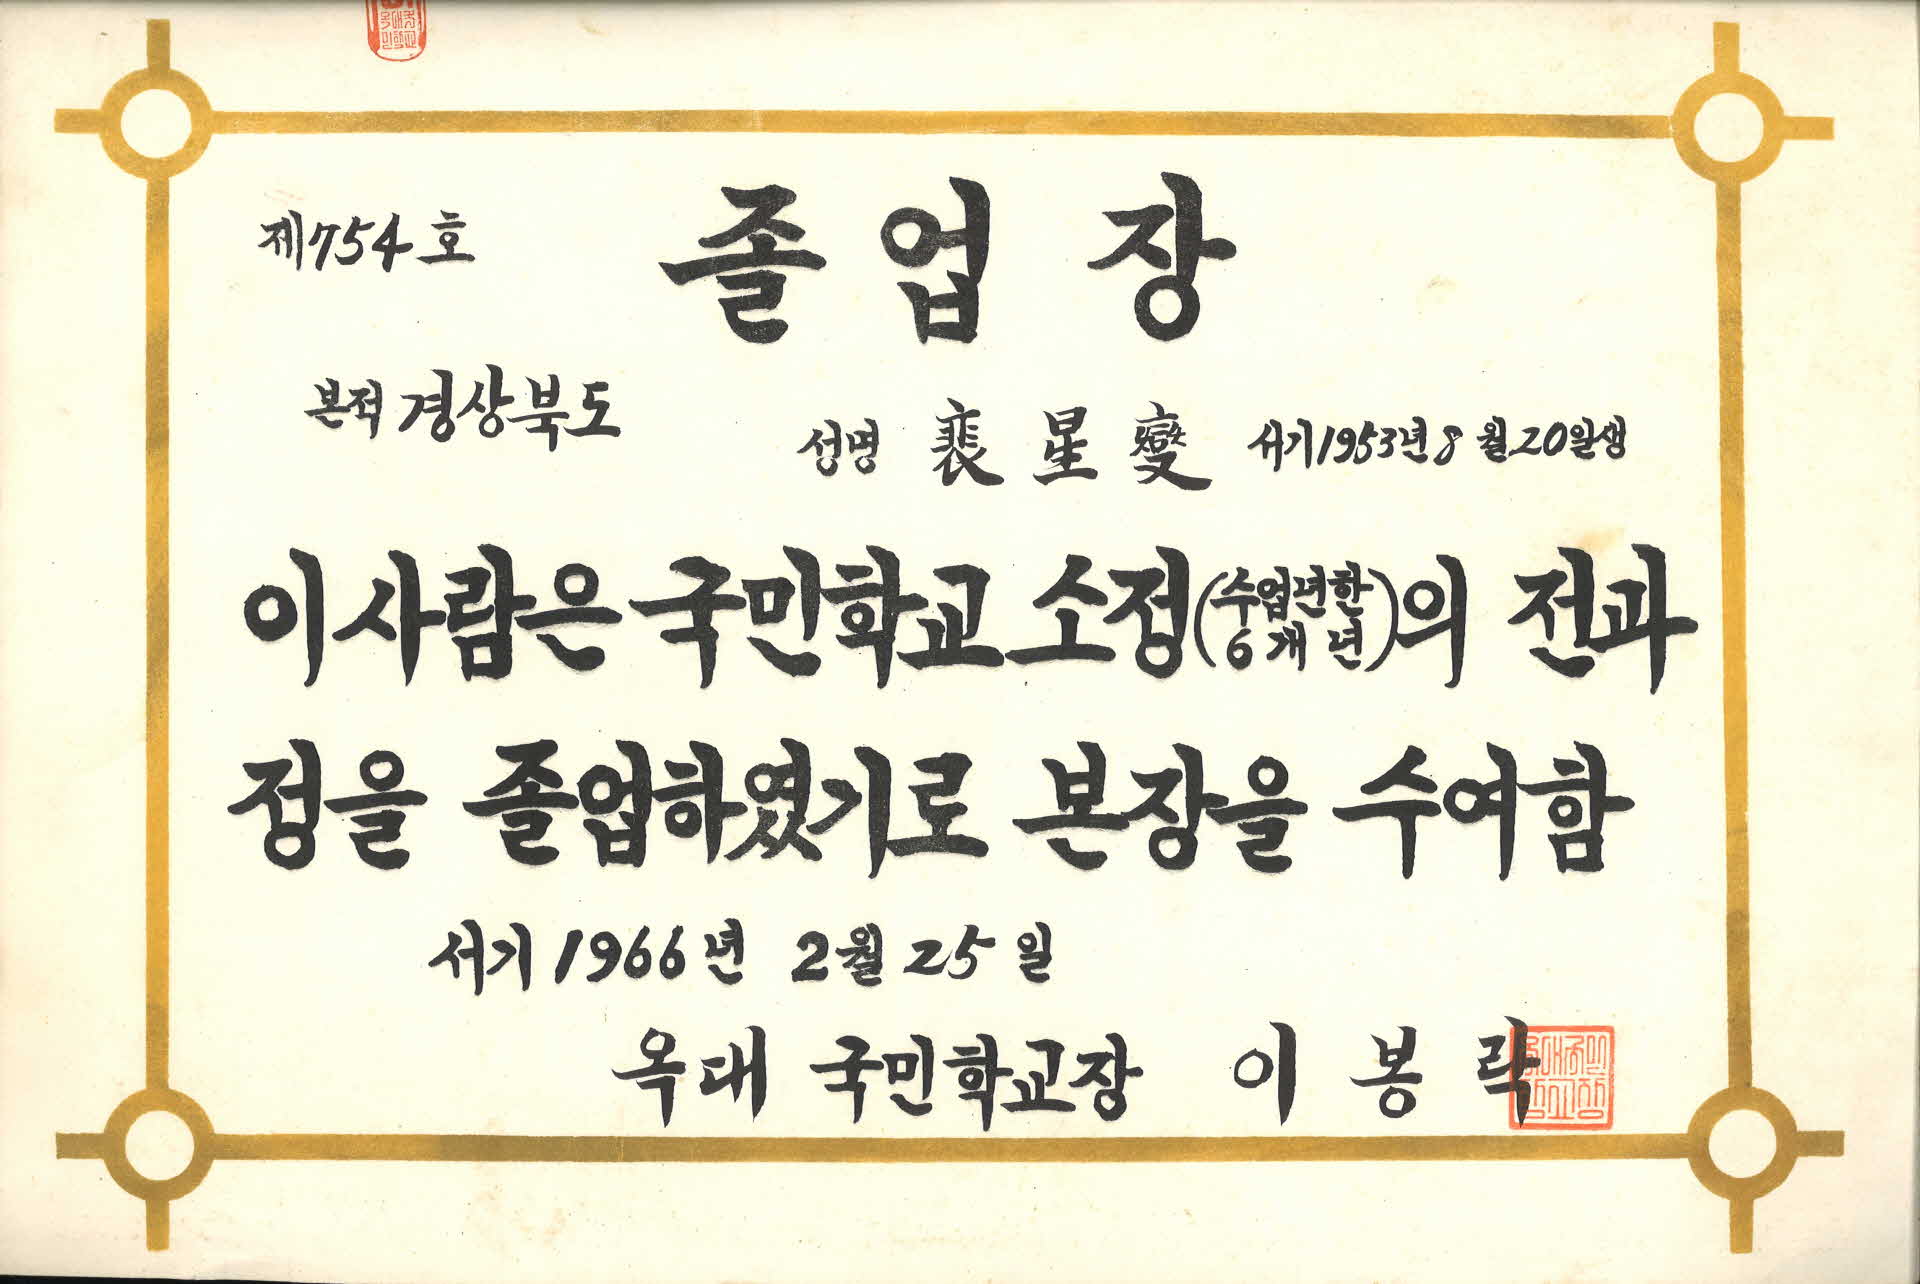 제754호
졸업장
본적 경상북도
성명 裵星燮 서기1953년8월20일생
이사람은 국민학교 소정(수업년한 6개년)의 전과
정을 졸업하였기로 본장을 수여함
서기 1966년 2월 25일
옥대 국민학교장 이봉락